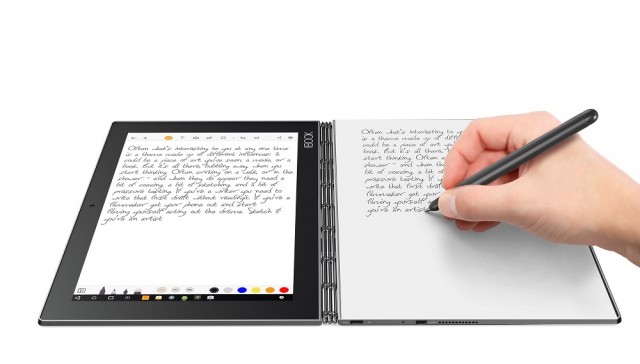 Often what's interesting to you at any one time
is a theme made up of different influences. It
could be a piece of art you've seen, a movie, or a
book. But it's all there, bubbling away, when you
start thinking. Often arriving on a walk, or in the
shower - and when they do appear they need a
bit of coaxing, a bit of sketching, and a bit of
pressure testing. If you're a writer you need to
write that first draft without rereading. If you're a
filmmaker get your phone out and start
filming yourself acting out the drama. Sketch if
you're an artist
BOOK
Often what's interesting to y
is a theme made up of diff
could be a piece of art yo
book. But it's all there,
start thinking. Often
shower - and when
bit of coaxing, a bit
pressure testing. If y
write that first draft
filmmaker get your ph
filming yourself a
you're an artist